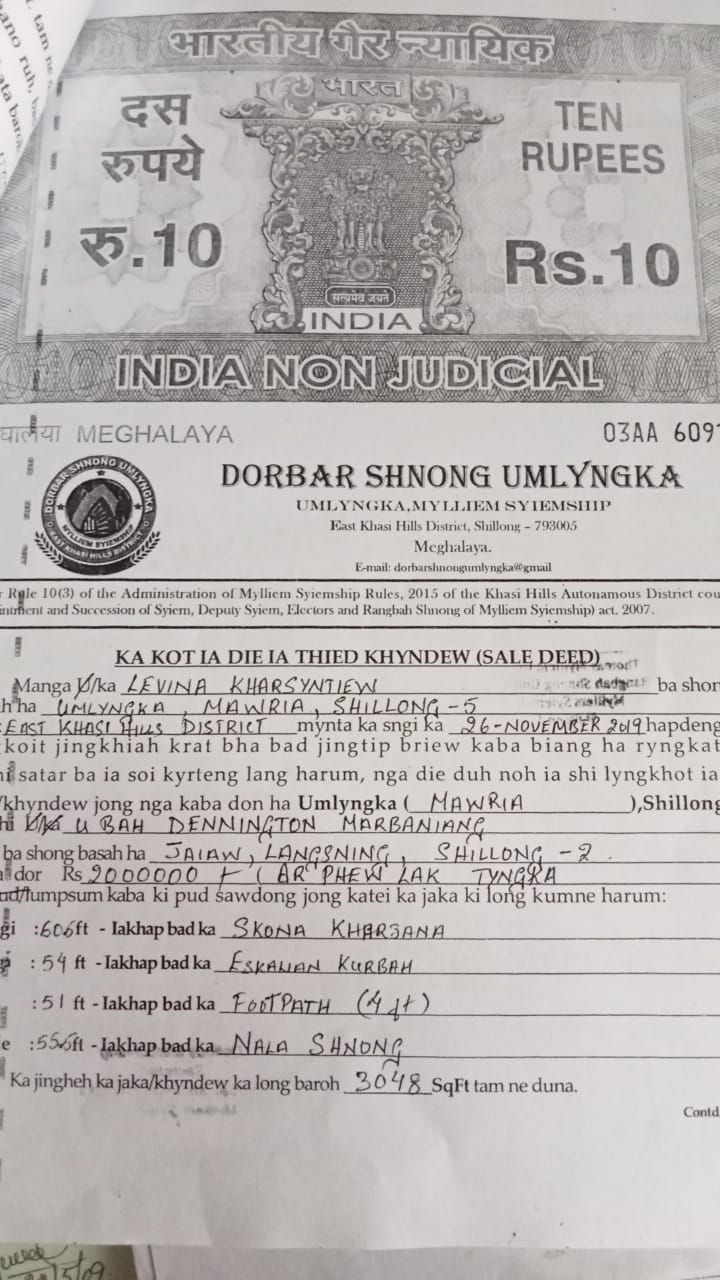 भारतीय गैर न्यायिक
भारत
दस
रुपये
रु.10
TEN
RUPEES
Rs.10
सत्यमेव जयते
INDIA
INDIA NON JUDICIAL
MEGHALAYA
03AA 609
DORBAR SHNONG UMLYNGKA
MYLLIEM SYIEMSHIP
EAST KHASI HILLS DISTRICT
DORBAR SHNONG UMLYNGKA
UMLYNGKA,MYLLIEM SYIEMSHIP
East Khasi Hills District, Shillong - 793005
Meghalaya.
E-mail: dorbarshnongumlyngka@gmail
Rule 10(3) of the Administration of Mylliem Syiemship Rules, 2015 of the Khasi Hills Autonomous District cou
and Succession of Syiem, Deputy Syiem, Electors and Rangbah Shnong of Mylliem Syiemship) act. 2007.
KA KOT IA DIE IA THIED KHYNDEW (SALE DEED)
Manga U/ka LEVINA KHARSYNTIEW ba shon
ha UMLYNGKA, MAWRIA, SHILLONG-5
EAST KHASI HILLS DISTRICT mynta ka sngi ka 26-NOVEMBER 2019 hapdeng
koit jingkhiah krat bha bad jingtip briew kaba biang ha ryngkat
satar ba ia soi kyrteng lang harum, nga die duh noh ia shi lyngkhot ia
/khyndew jong nga kaba don ha Umlyngka ( MAWRIA ),Shillong
U BAH DENNINGTON MARBANIANG
ba shong basah ha JAIAW, LANGSNING, SHILLONG -2.
dor Rs 2000000 ( AR PHEW LAK TYNGKA
/lumpsum kaba ki pud sawdong jong katei ka jaka ki long kumne harum:
ft - Iakhap bad ka SKONA KHARJANA
: 54 ft -Iakhap bad ka ESKALIAN KURBAH
:51 ft -Iakhap bad ka FOOTPATH (4 ft)
ft -Iakhap bad ka NALA SHNONG
Ka jingheh ka jaka/khyndew ka long baroh 3048 SqFt tam ne duna.
Contd